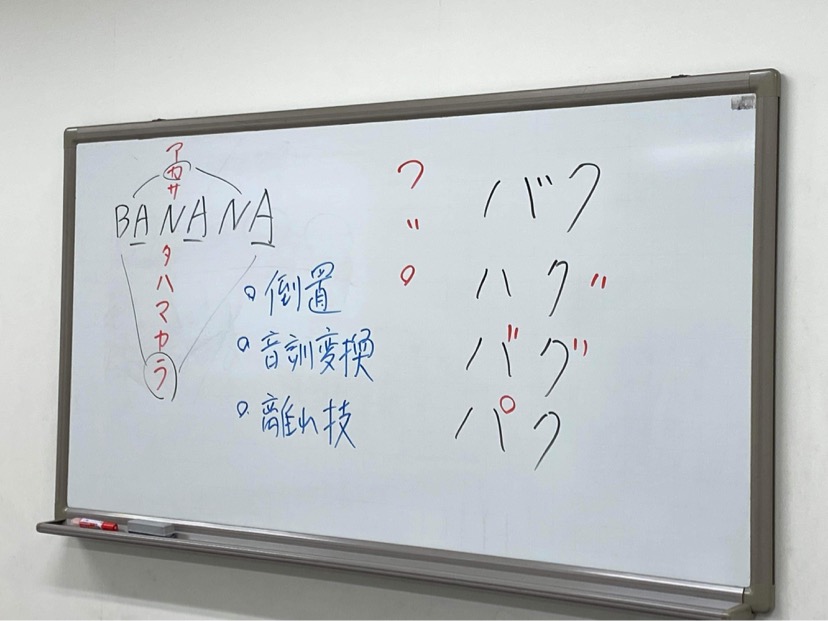 ア
カ
サ
BANANA
タ
ハ
マ
ヤ
ラ
○倒置
○音訓変換
○離れ技
つ
゛
゜
バク
ハグ
バグ
パク